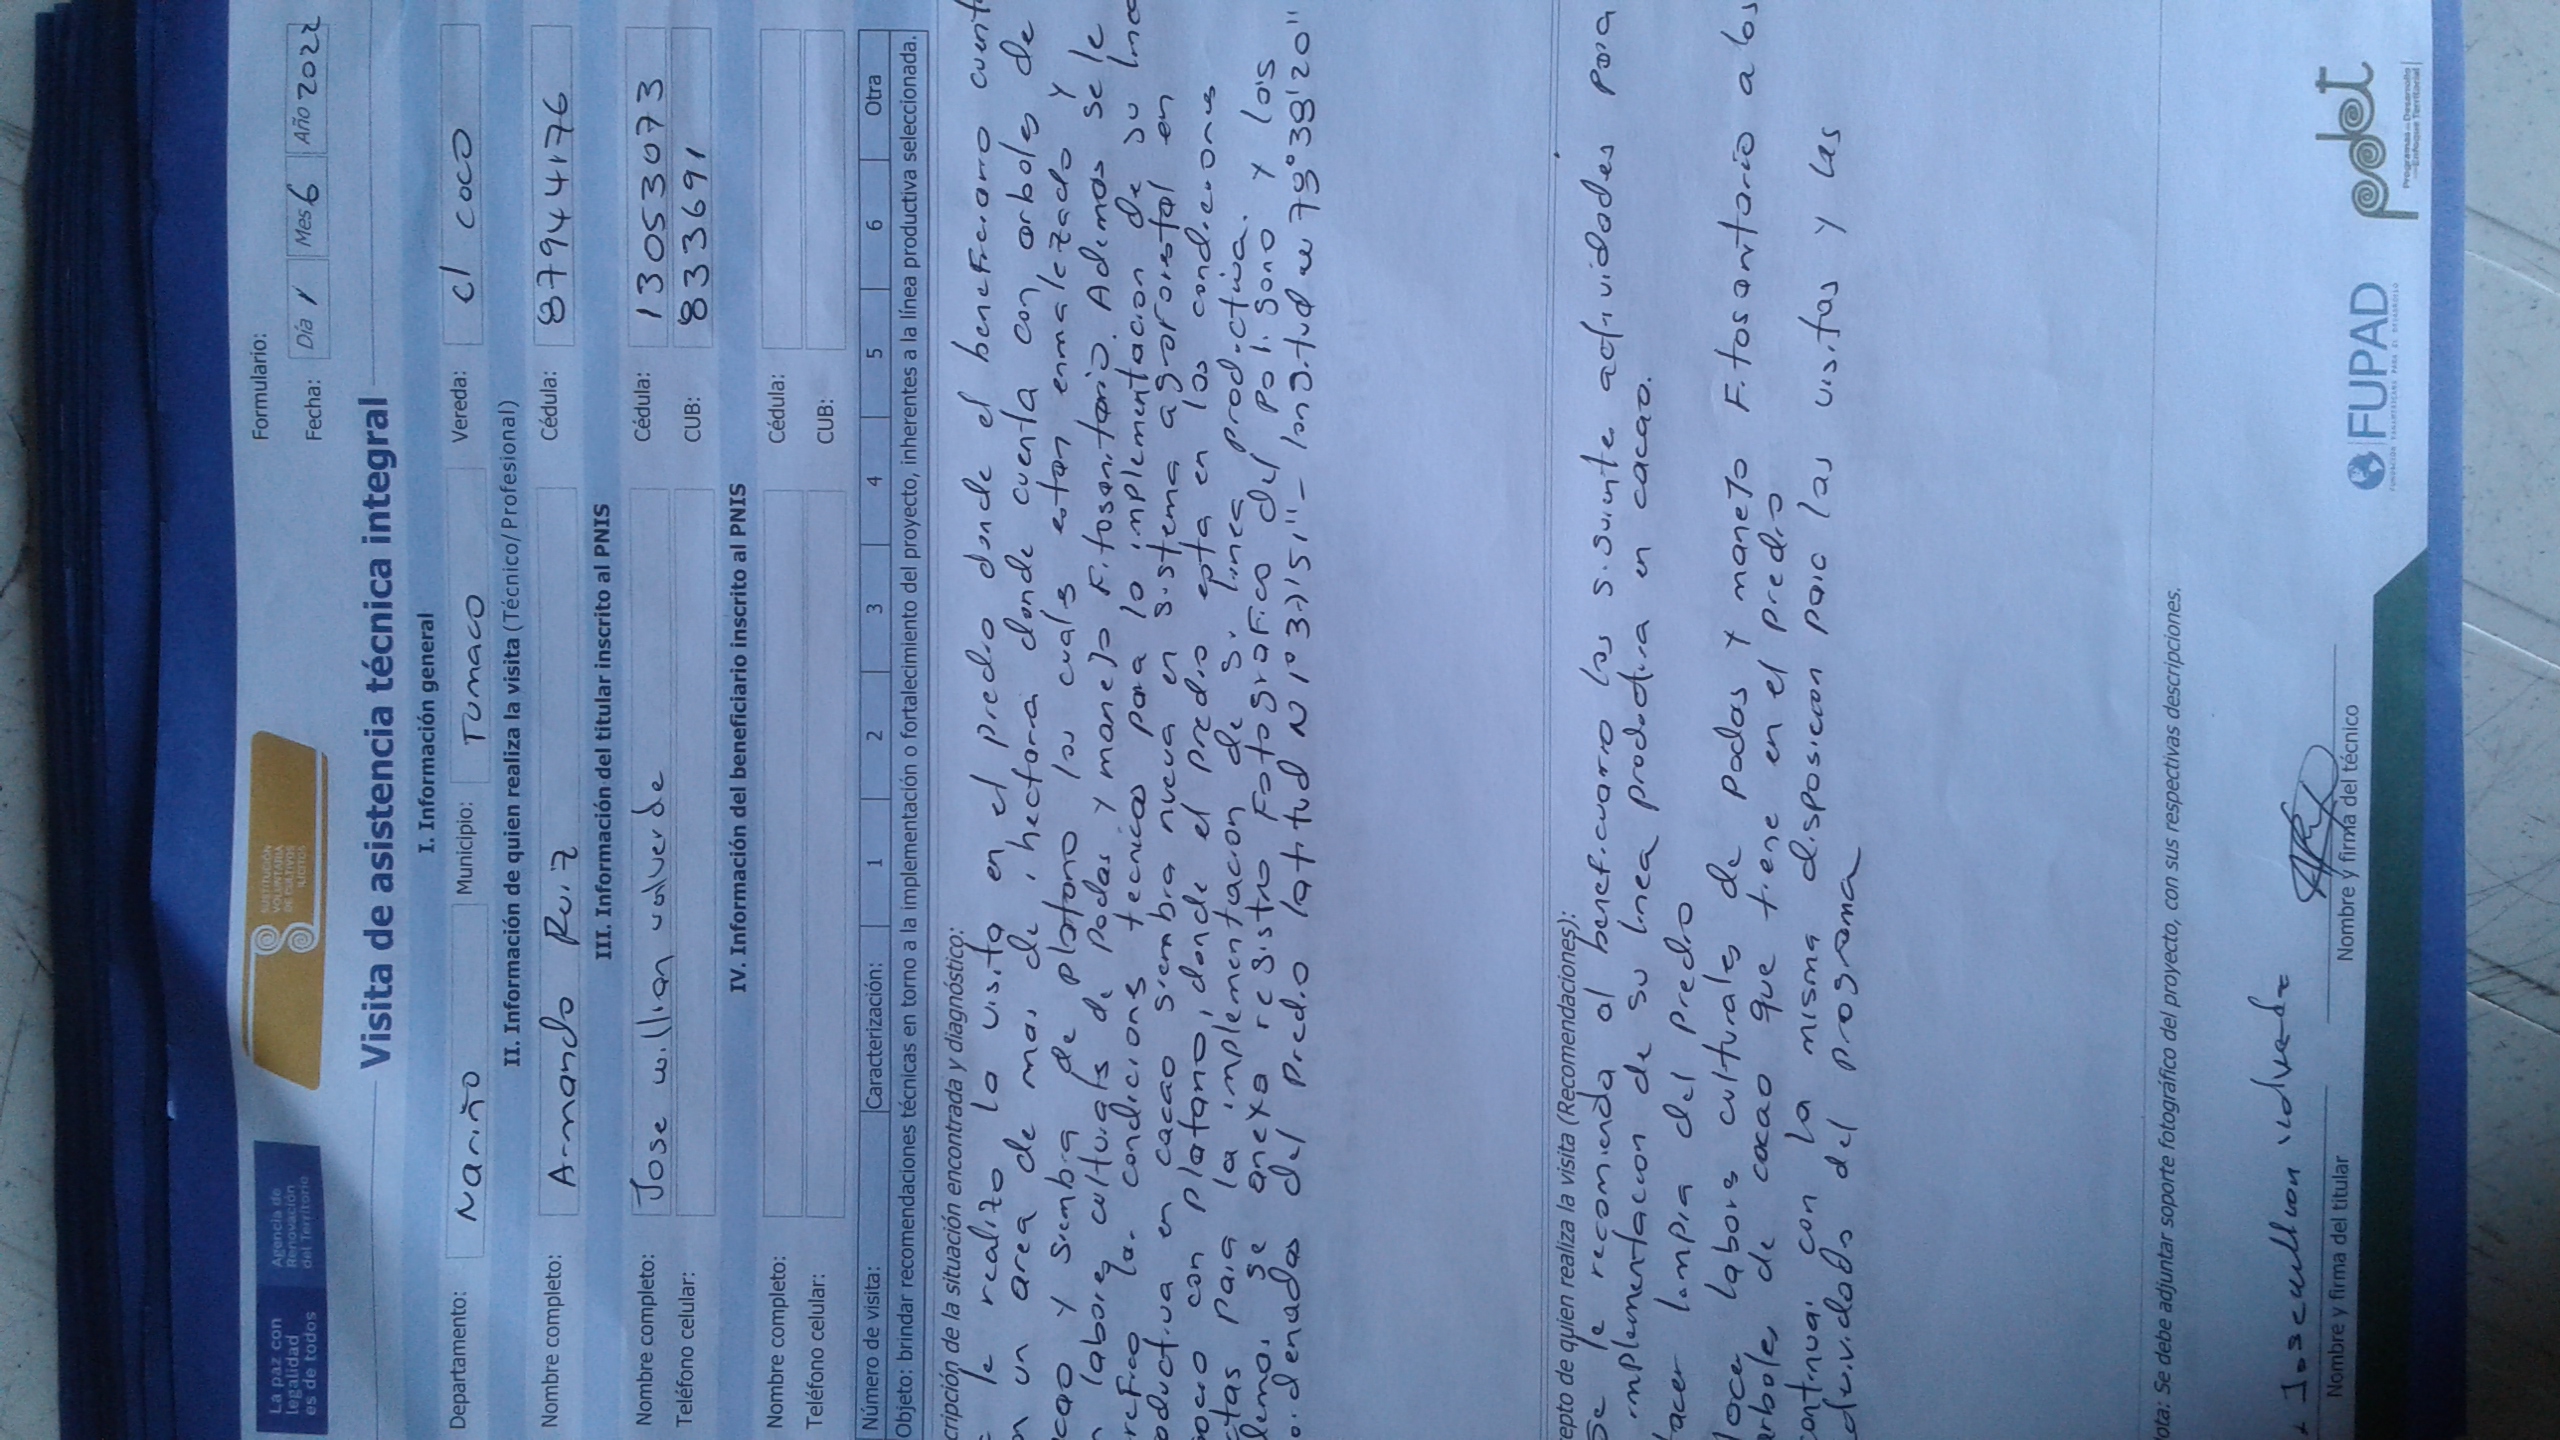 La paz con
legalidad
es de todos
Agencia de
Renovación
del Territorio
SUSTITUCIÓN
VOLUNTARIA
DE CULTIVOS
ILÍCITOS
Formulario:
Fecha: Día 1 Mes 6 Año 2022
Visita de asistencia técnica integral
I. Información general
Departamento: Nariño Municipio: Tumaco Vereda: el coco
II. Información de quien realiza la visita (Técnico/Profesional)
Nombre completo: Armando Ruiz Cédula: 87944176
III. Información del titular inscrito al PNIS
Nombre completo: Jose willian valverde Cédula: 13053073
Teléfono celular: CUB: 833691
IV. Información del beneficiario inscrito al PNIS
Nombre completo: Cédula:
Teléfono celular: CUB:
Número de visita: Caracterización: 1 2 3 4 5 6 Otra
Objeto: brindar recomendaciones técnicas en torno a la implementación o fortalecimiento del proyecto, inherentes a la línea productiva seleccionada.
cripción de la situación encontrada y diagnóstico:
le realizo la visita en el predio donde el beneficiario cuent
n un area de mas de 1 hectarea donde cuenta con arboles de
cao y siembra de platano los cuales estan enmalezado y
n labores culturales de Podas y manejo Fitosanitario. Ademas se le
condiciones tecnicas para la implementacion de su linea
oductiva en cacao siembra nueva en sistema agroforestal en
ocio con platano, donde el predio esta en las condiciones
tas para la implementacion de su linea productiva.
demas se anexa registro Fotografico del Poligono y las
oordenadas del predio latitud N 1°37'51" - longitud w 79°39'20"
epto de quien realiza la visita (Recomendaciones):
Se le recomienda al beneficiario las siguiente actividades para
implementacion de su linea productiva en cacao.
acer limpia del predio
labores culturales de podas y manejo Fitosanitario a los
arboles de cacao que tiene en el predio
continuar con la misma disposicion para las visitas y las
actividades del programa
ota: Se debe adjuntar soporte fotográfico del proyecto, con sus respectivas descripciones.
Jose willian valverde
Nombre y firma del titular
Nombre y firma del técnico
FUPAD
FUNDACIÓN PANAMERICANA PARA EL DESARROLLO
pdet
Programas de Desarrollo
con Enfoque Territorial